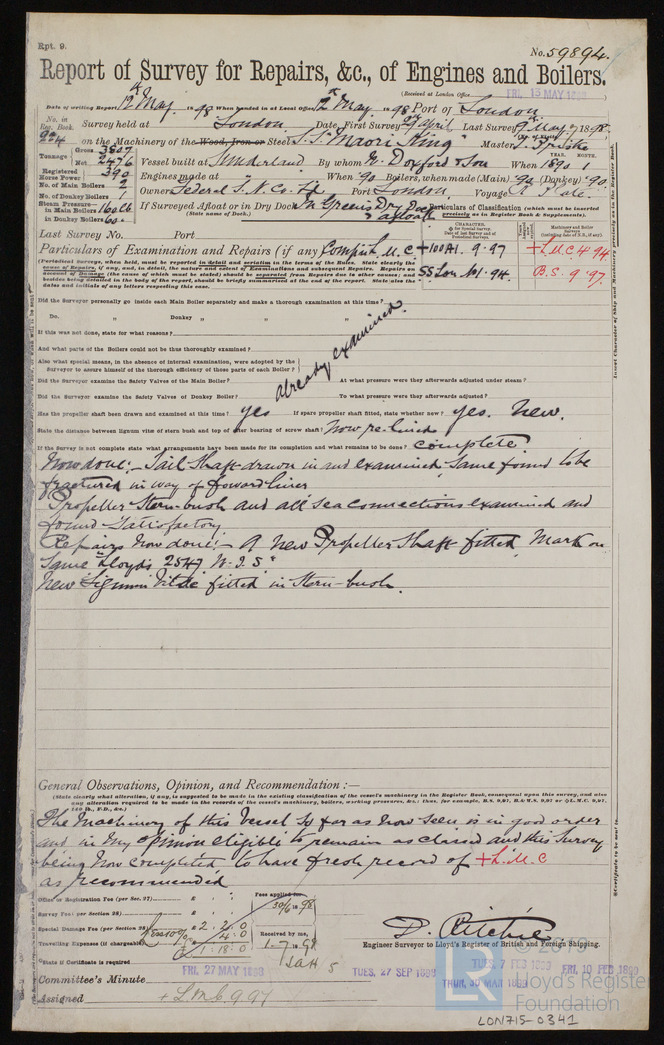 Rpt. 9.
No. 59894.
Report of Survey for Repairs, &c., of Engines and Boilers.
(Received at London Office FRI. 13 MAY 1898
Date of writing Report 12th May 1898 When handed in at Local Office 12th May 1898 Port of London
No. in Reg. Book. Survey held at London Date, First Survey 9th April Last Survey 9th May 1898
on the Machinery of the Wood, Iron or Steel S.S. "Maori King" Master
Tonnage Gross 3807
Net 2476
Vessel built at Sunderland By whom W. Doxford & Son When 1890 1
Registered Horse Power 390
Engines made at " When 90 Boilers, when made (Main) 90 (Donkey) 90
No. of Main Boilers 2
No. of Donkey Boilers 1
Owners Federal S. N. Co. Ld Port London Voyage R. Plate
Steam Pressure in Main Boilers 160 lb
in Donkey Boilers 60
If Surveyed Afloat or in Dry Dock In Greens Dry Dock & afloat
(State name of Dock.)
Particulars of Classification (which must be inserted precisely as in Register Book & Supplements).
Last Survey No. Port
Particulars of Examination and Repairs (if any) Complete L.M.C.
+100A1. 9.97
SS. Lon. No 1. 94.
+L.M.C. 4.94
B.S. 9.97.
Did the Surveyor personally go inside each Main Boiler separately and make a thorough examination at this time?
Do. " Donkey " " "
If this was not done, state for what reasons?
And what parts of the Boilers could not be thus thoroughly examined?
Also what special means, in the absence of internal examination, were adopted by the Surveyor to assure himself of the thorough efficiency of those parts of each Boiler?
already examined.
Did the Surveyor examine the Safety Valves of the Main Boiler? At what pressure were they afterwards adjusted under steam?
Did the Surveyor examine the Safety Valves of Donkey Boiler? To what pressure were they afterwards adjusted?
Has the propeller shaft been drawn and examined at this time? yes If spare propeller shaft fitted, state whether new? yes. New.
State the distance between lignum vitæ of stern bush and top of after bearing of screw shaft? Now re-lined
If the Survey is not complete state what arrangements have been made for its completion and what remains to be done? complete
Now done:- Tail Shaft drawn in and examined, same found to be
fractured in way of foward liner
Propeller Stern-bush and all sea connections examined and
found Satisfactory.
Repairs now done:- A New Propeller Shaft fitted, Mark on
same Lloyds 2547 W.I.S.
New Lignum Vitae fitted in Stern-bush.
General Observations, Opinion, and Recommendation:—
(State clearly what alteration, if any, is suggested to be made in the existing classification of the vessel's machinery in the Register Book, consequent upon this survey, and also
any alteration required to be made in the records of the vessel's machinery, boilers, working pressures, &c.: thus, for example, B.S. 9,97, B.&M.S. 9,97 or L.M.C. 9,97,
140 lb., F.D., &c.)
The Machinery of this Vessel so far as now seen is in good order
and in my opinion eligible to remain as classed and this Survey
being now completed to have fresh record of +L.M.C
as recommended
Office or Registration Fee (per Sec. 27) £ : :
Survey Fee (per Section 28) £ : :
Special Damage Fee (per Section 28) £ 2 : 2 : 0
Less 10% 4 : 0
Travelling Expenses (if chargeable) £ 1 : 18 : 0
Fees applied for 30/6 1898
Received by me, 1-7 1898
D. Ritchie
Engineer Surveyor to Lloyd's Register of British and Foreign Shipping.
State if Certificate is required
FRI. 27 MAY 1898
TUES. 27 SEP 1898
TUES. 7 FEB 1899
FRI. 10 FEB 1899
THUR. 30 MAR 1899
Committee's Minute
Assigned + L.M.C. 9.97
© 2015
LR
Lloyd's Register
Foundation
LON715-0341